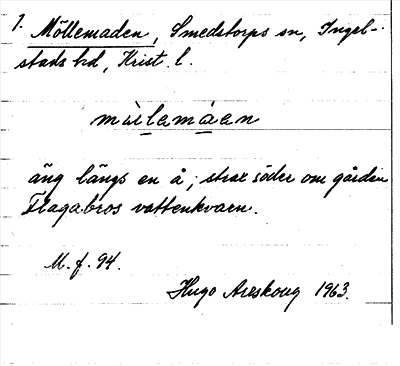 1. Möllemaden, Smedstorps sn, Ingel-
stads hd, Krist. l.
äng längs en å; strax söder om gården
Flagabros vattenkvarn.
M. f. 94.
Hugo Areskoug 1963.